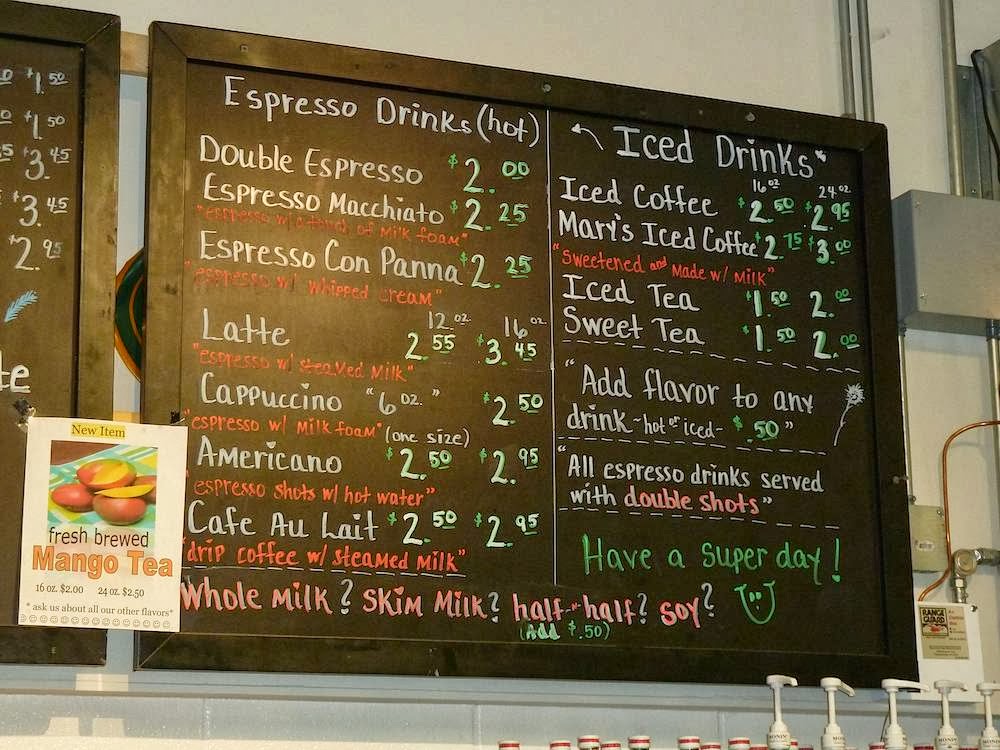 $1.50
$1.50
$3.45
$3.45
$2.95
te
New Item
fresh brewed
Mango Tea
16 oz. $2.00 24 oz. $2.50
* ask us about all our other flavors*
Espresso Drinks (hot)
Double Espresso $2.00
Espresso Macchiato $2.25
"espresso w/ a touch of milk foam"
Espresso Con Panna $2.25
"espresso w/ whipped cream"
12 oz. 16 oz
Latte 2.55 $3.45
"espresso w/ steamed milk"
Cappuccino "6 oz." $2.50
"espresso w/ milk foam" (one size)
Americano $2.50 $2.95
"espresso shots w/ hot water"
Cafe Au Lait $2.50 $2.95
"drip coffee w/ steamed milk"
Whole Milk? Skim Milk? half-n-half? Soy?
(Add $.50)
Iced Drinks
16 oz 24 oz.
Iced Coffee $2.50 $2.95
Mary's Iced Coffee $2.75 $3.00
"Sweetened and Made w/ Milk"
Iced Tea $1.50 2.00
Sweet Tea $1.50 2.00
"Add flavor to any
drink ~hot or iced~ $.50"
"All espresso drinks served
with double shots"
Have a super day!
RANGE
GUARD